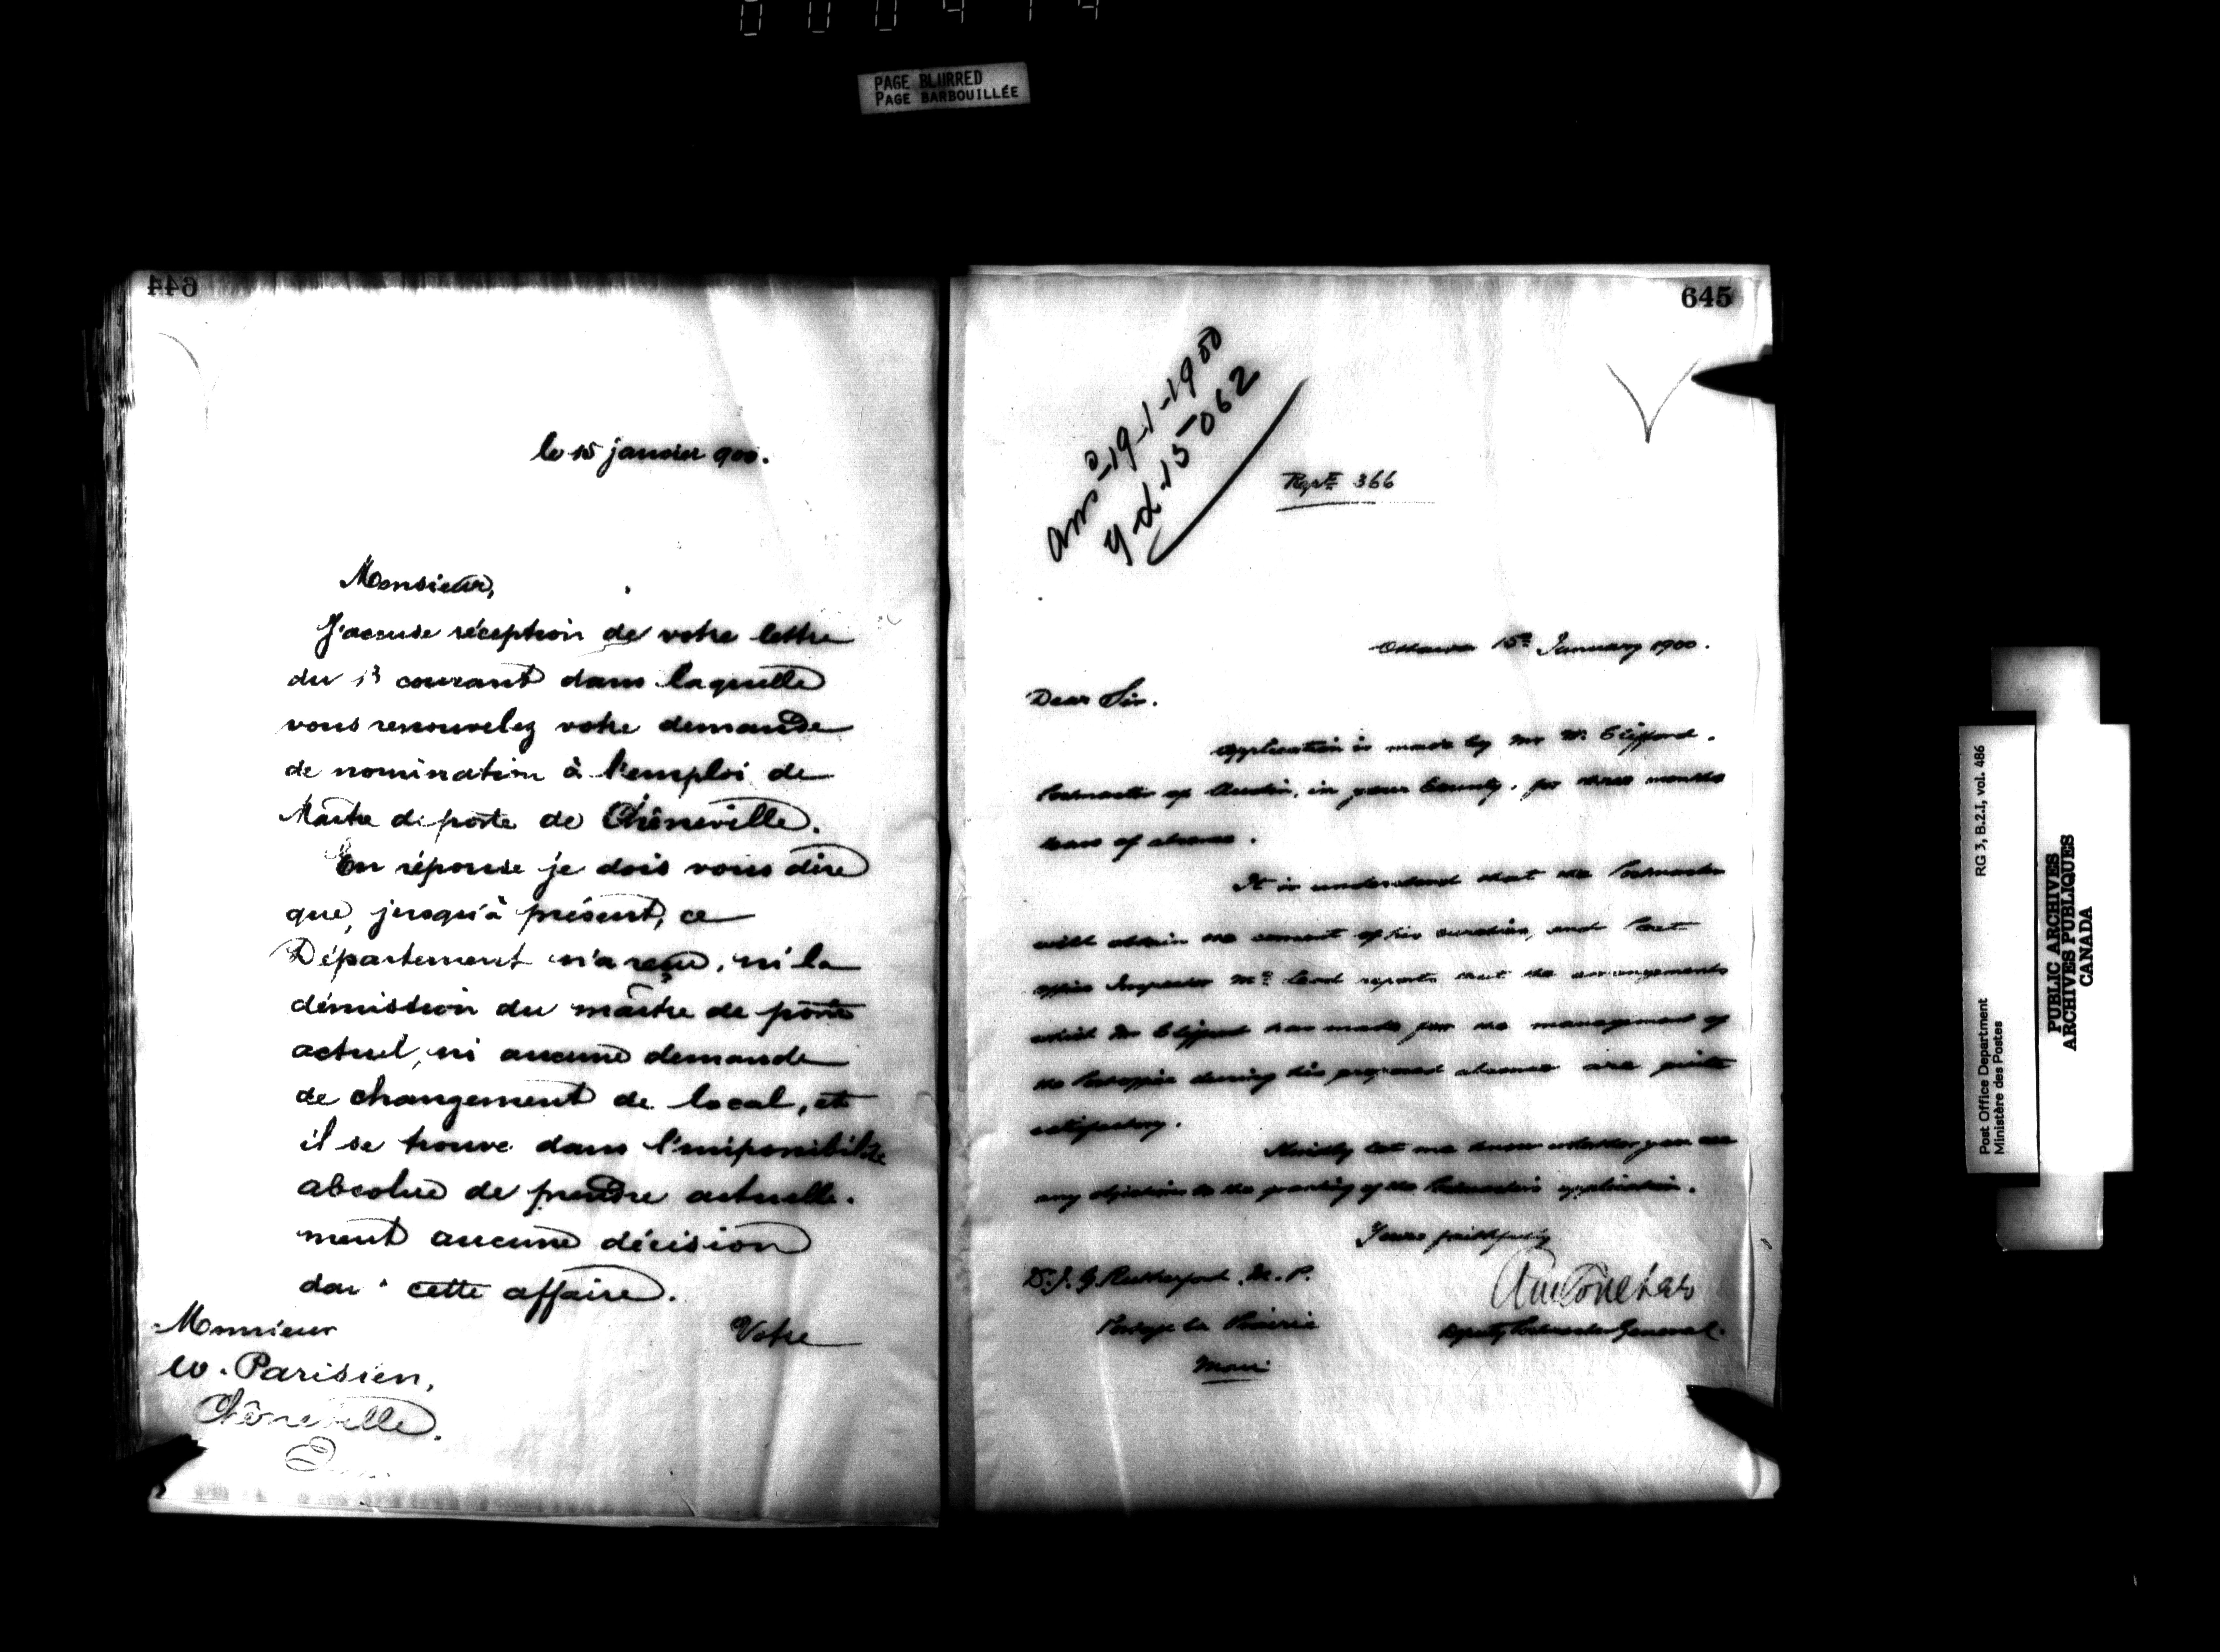 PAGE BLURRED
PAGE BARBOUILLÉE
644
le 15 janvier 900.
Monsieur,
J'accuse réception de votre lettre
du 13 courant dans laquelle
vous renouvelez votre demande
de nomination à l'emploi de
Maître de poste de Chêneville.
En réponse je dois vous dire
que, jusqu'à présent, ce
Département n'a reçu, ni la
démission du maître de poste
actuel, ni aucune demande
de changement de local, et
il se trouve dans l'impossibilité
absolue de prendre actuelle-
ment aucune décision
dans cette affaire.
Votre
Monsieur
W. Parisien,
Chêneville.
645
ans d 19-1-1900
y d. 15062
Rept 366
Ottawa 15th January 1900.
Dear Sir.
Application is made by Mr W. Clifford.
Postmaster of Austin, in your County, for three months
leave of absence.
It is understood that the Postmaster
will obtain the consent of his sureties, and Post
Office Inspector McLeod reports that the arrangements
which Mr Clifford has made for the management of
the Postoffice during his proposed absence are quite
satisfactory.
Kindly let me know whether you see
any objection to the granting of the Postmaster's application.
Yours faithfully
Deputy Postmaster General.
Dr. J. G. Rutherford, M. P.
Portage la Prairie
Man:
Post Office Department
Ministère des Postes
RG 3, B.2.I, vol. 486
PUBLIC ARCHIVES
ARCHIVES PUBLIQUES
CANADA